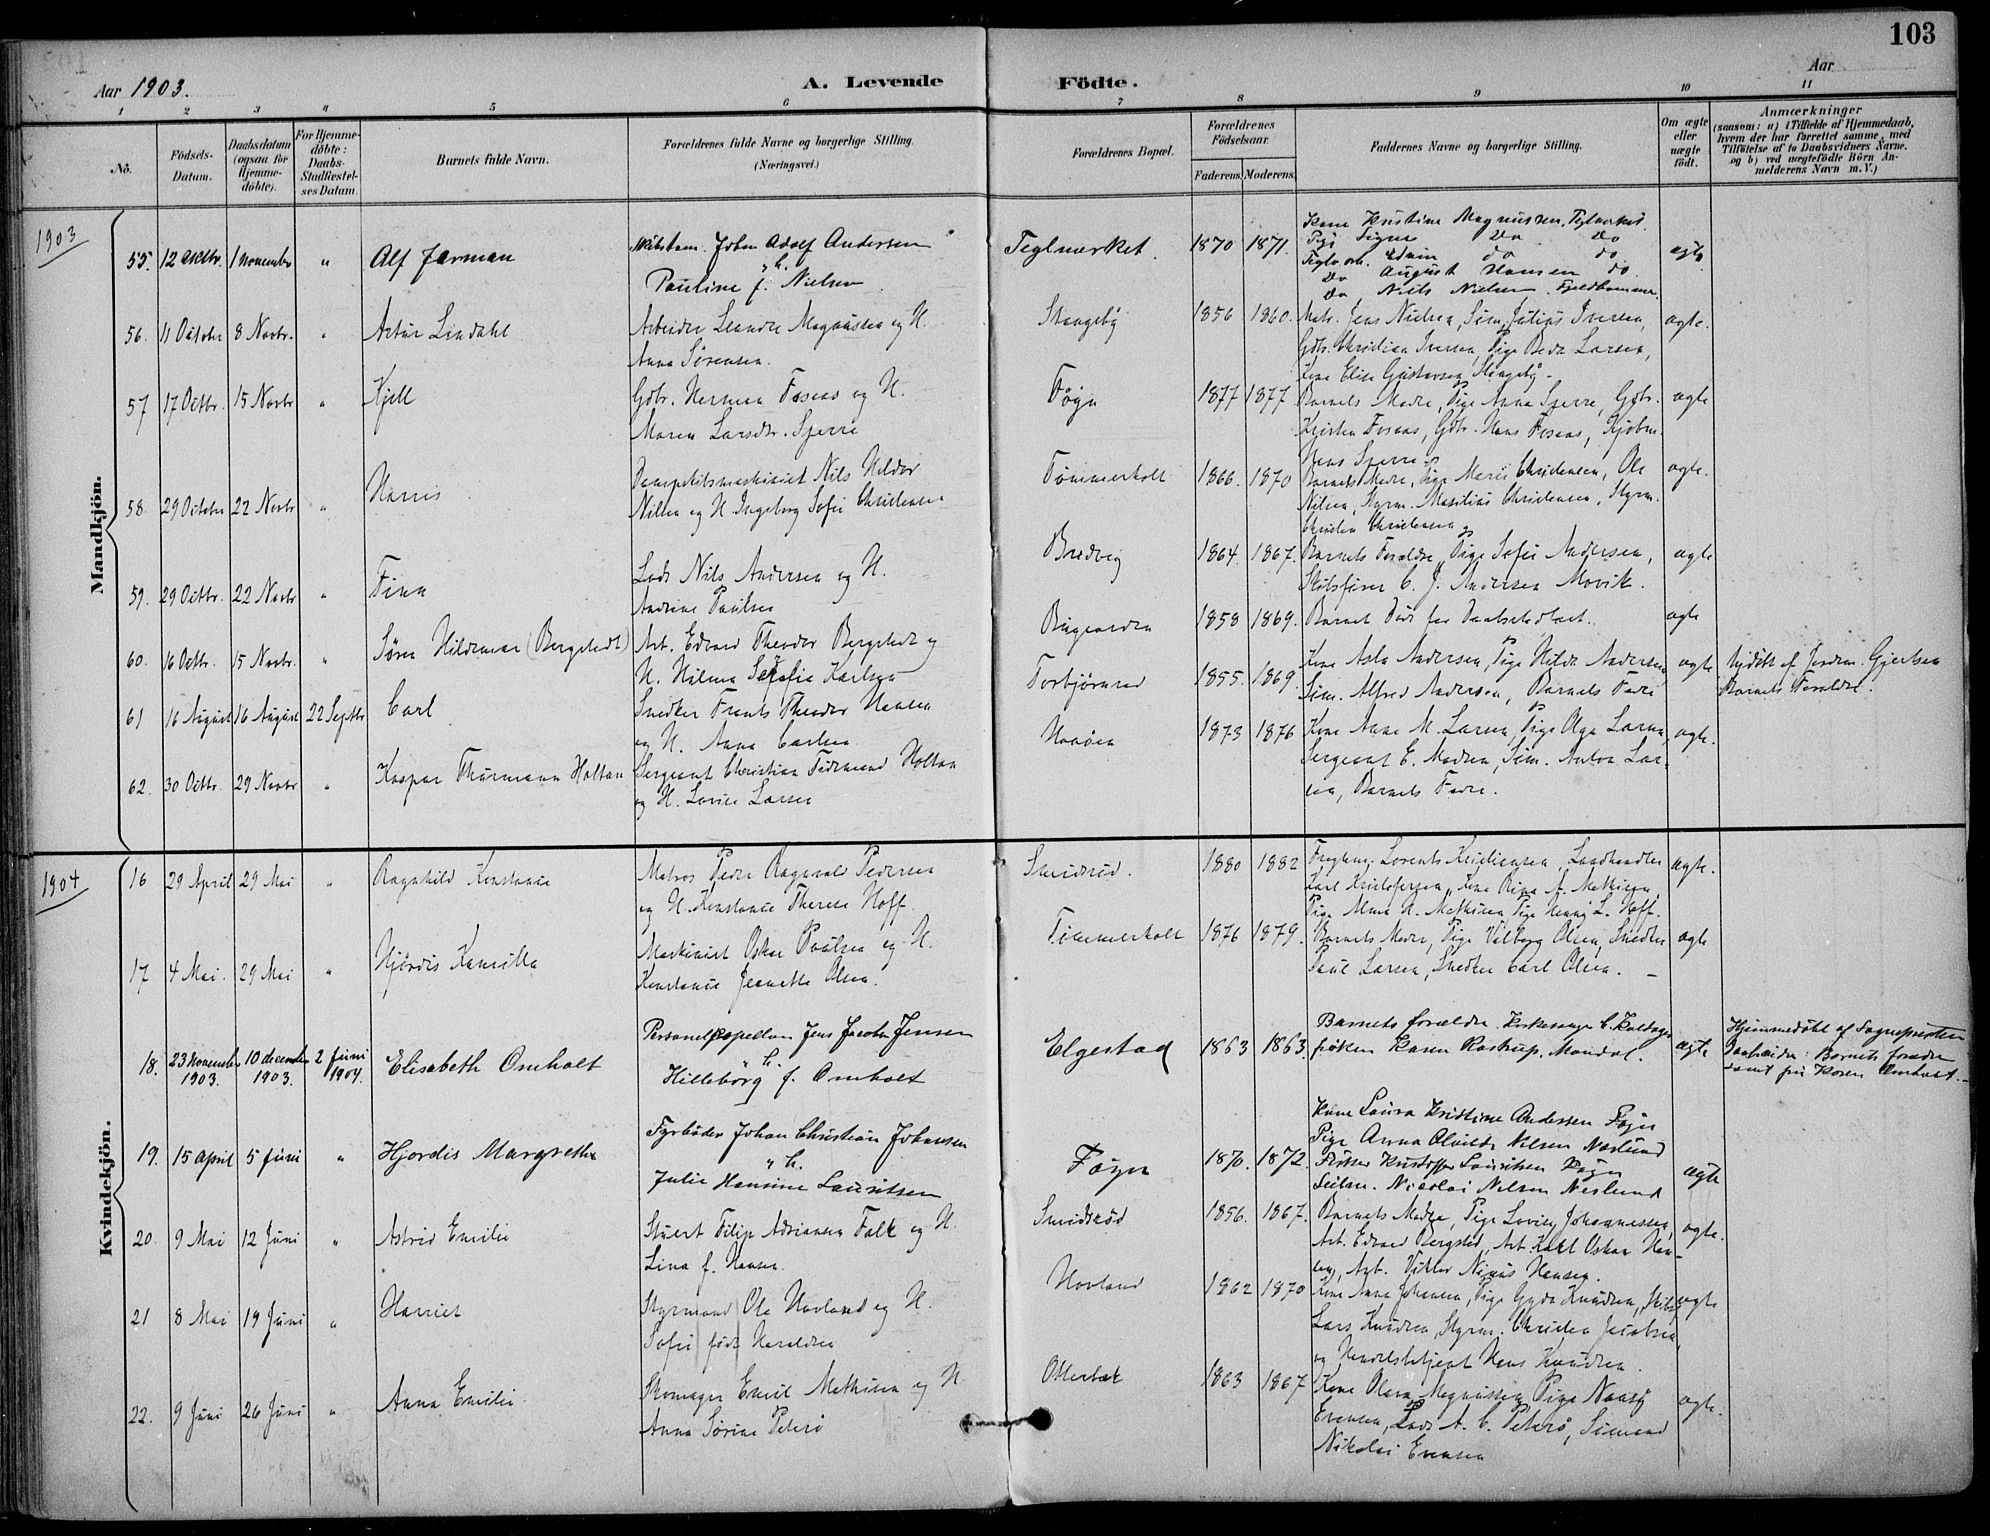 103
Aar 1903.
A. Levende Födte.
Aar
1 2 3 4 5 6 7 8 9 10 11
No.
Födsels-Datum.
Daabsdatum (ogsaa for Hjemme-döbte).
For Hjemme-döbte: Daabs-Stadfæstel-ses Datum.
Barnets fulde Navn.
Forældrenes fulde Navne og borgerlige Stilling. (Næringsvei.)
Forældrenes Bopæl.
Forældrenes Födselsaar.
Faderens. Moderens.
Faddernes Navne og borgerlige Stilling.
Om ægte eller uægte født.
Anmærkninger
(saasom: a) i Tilfælde af Hjemmedaab, hvem der har forrettet samme, med Tilföielse af to Daabsvidners Navne, og b) ved uægtefödte Börn Anmelderens Navn m.V.)
1903
Mandkjön.
55. 12 oktbr. 1 november " Alf Jarman
Skibstøm. Johan Adolf Andersen
" h.
Pauline f. Nielsen
Teglverket. 1870 1871.
Kone Kristine Magnussen, Teglverket
Pige Signe Do Do
Teglv.arb. Edvin do do
Do August Hansen do
Do Nils Nielsen
ægte
56. 11 October 8 Novbr. " Artur Lindahl
Arbeider Leander Magnussen og H.
Anna Sørensen.
Stangeby 1856 1860.
Matr. Jens Nielsen, Søm. Julius Iversen,
Gdbr. Christian Iversen, Pige Beda Larsen,
Kone Elise Gustavsen, Stangeby
ægte.
57 17 Octbr. 15 Novbr " Kjell
Gdbr. Herman Fosaas og H.
Maren Larsdtr. Sperre
Føyn 1877 1877
Barnets Madre, Pige Anna Sperre, Gdbr.
Kristen Fosaas, Gdbr. Hans Fosaas, Kjøbm.
Hans Sperre
ægte
58. 29 October 22 Novbr " Harris
Dampskibsmaskinist Nils Hildor
Nilsen og H. Ingeborg Sofie Christensen
Tømmerholt 1866. 1870
Barnets Madre, Pige Marie Christensen, Ole
Nilsen, Styrm. Christensen, Styrm.
Christian Christensen
ægte.
59. 29 Octbr. 22 Novbr " Finn
Lods Nils Andersen og H.
Andrine Paulsen
Bredvig 1864. 1867.
Barnets Forældre, Pige Sofie Andersen,
Skibsfører C. J. Andersen Movik.
ægte
60. 16 Octbr. 15 Novbr. " Søren Hildemar (Bergstedt)
Arb. Edvard Theodor Bergstedt og
H. Hilma Karlsen
1858 1869.
Barnet
ægte
61 16 August 16 August 22 Septbr Carl
Snedker Frants Theodor Hansen
og H. Anna Carlsen
Torbjørnrød 1855. 1869.
Kone Asla Andersen, Pige Hilda Andersen
Søm. Alfred Andersen, Barnets Fadre
ægte
Hjdøbt af Jordm. Gjertsen
Barnets Forældre.
62. 30 Octbr. 29 Novbr " Kaspar Thurmann Holtan
Sergeant Christian Holtan
og H. Lovise Larsen
1873 1876
Kone Anne M. Larsen, Pige Olga Larsen,
Sergeant E. Madsen, Søm. Anton Lar-
sen, Barnets Fadre.
ægte.
1904
Kvindekjön.
16 29 April 29 Mai " Ragnhild Konstance
Matros Peder Ragnvald Pedersen
og H. Konstance Therese Hoff.
Smidsrød. 1880 1882
Lorents Kristiansen, Landhandler
Karl Kristofersen, Kone A. Mathisen,
Pige Alma H. Mathisen, Pige Henny L. Hoff.
ægte.
17 4 Mai. 29 Mai " Hjørdis Kamilla
Maskinist Oskar Paulsen og H.
Konstance Jeanette Olsen.
Tømmerholt 1876 1879.
Barnets Madre, Pige Valborg Olsen, Snedker
Paul Larsen, Snedker Carl Olsen.
ægte
18. 23 November 1903. 10 december 1903. 2 Juni 1904. Elisabeth Omholt
Personelkapellan Jens Jacobs Jensen
" h.
Hilleborg f. Omholt
Elgestad 1863 1863.
Barnets forældre. Kirkesanger C. Kaldager
frøken Karen Rostrup, Mandal.
ægte
Hjemmedøbt af Sognepresten
Daabsvidner: Barnets forældre
samt frk Karen Omholt.
19. 15 April 5 Juni " Hjordis Margrethe
Fyrbøder Johan Christian Johansen
" h.
Julie Hansine Lauritsen
Føyn 1870. 1872.
Kone Laura Kristine Andersen Føyn
Pige Anna Olvilde Nilsen Nesland
Kristoffer Lauritsen Føyn
Nicolai Nilsen Nesland
ægte
20. 9 Mai 12 Juni " Astrid Emilie
Stuert Filip Adriansen Falk og H.
Lina f. Hansen.
Smidsrød 1856. 1867.
Barnets Madre, Pige Lovise Johannessen,
Arb. Edvard Bergsted, Arb. Karl Oskar Han-
sen, Arb. Viktor Hansen.
ægte.
21 8 Mai 19 Juni " Harriet
Styrmand Ole Hovland og H.
Sofie født Haraldsen
Hovland 1862 1870
Kone Anna Johansen, Pige Gyda Knudsen, Skibsf.
Lars Knudsen, Styrm. Christen Jacobsen,
og Handelsbetjent Hans Knudsen.
ægte
22. 9 Juni 26 Juni " Anna Emilie
Skomager Emil Mathisen og H.
Anna Sørine Peterø
Otterbæk 1863 1867
Kone Olava Magnussen, Pige
Evensen, Lods A. C. Peterø, Sømand
Nikolai Evensen
ægte.